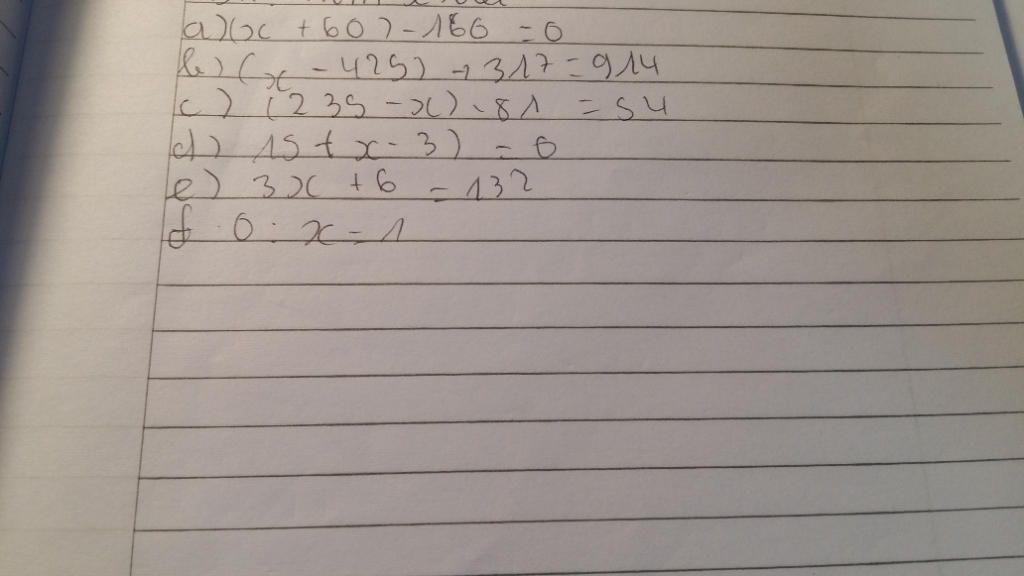 a) (x + 60) - 160 = 0
b) (x - 425) + 317 = 914
c) (235 - x) - 81 = 54
d) 15 + x - 3) = 0
e) 3x + 6 = 132
f 0 : x = 1